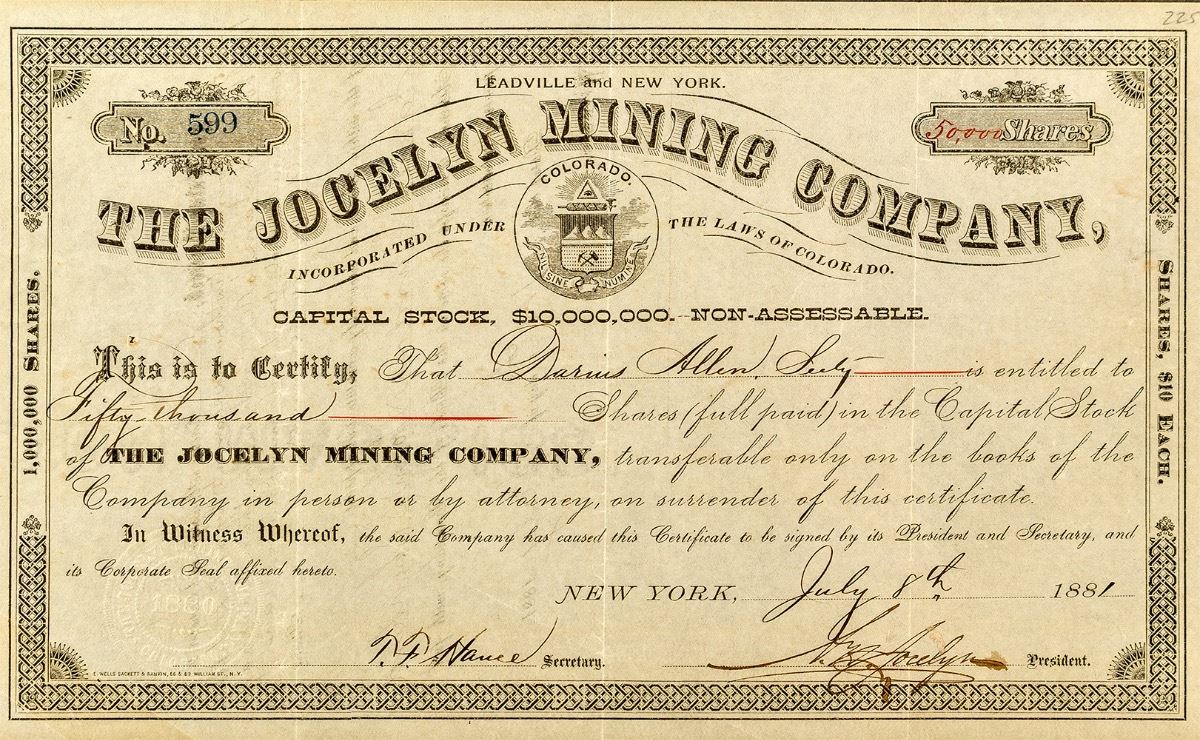 225
LEADVILLE and NEW YORK.
No. 599
50,000 Shares
THE JOCELYN MINING COMPANY,
COLORADO.
INCORPORATED UNDER THE LAWS OF COLORADO.
NIL SINE NUMINE
CAPITAL STOCK, $10,000,000. NON-ASSESSABLE.
1,000,000 SHARES.
SHARES, $10 EACH.
This is to Certify, That Darius Allen, is entitled to
Fifty thousand Shares (full paid) in the Capital Stock
of THE JOCELYN MINING COMPANY, transferable only on the books of the
Company in person or by attorney, on surrender of this certificate.
In Witness Whereof, the said Company has caused this Certificate to be signed by its President and Secretary, and
its Corporate Seal affixed hereto.
NEW YORK, July 8th 1881
1880
T. F. Vance Secretary.
Jocelyn President.
E. WELLS SACKETT & RANKIN, 56 & 58 WILLIAM ST., N.Y.